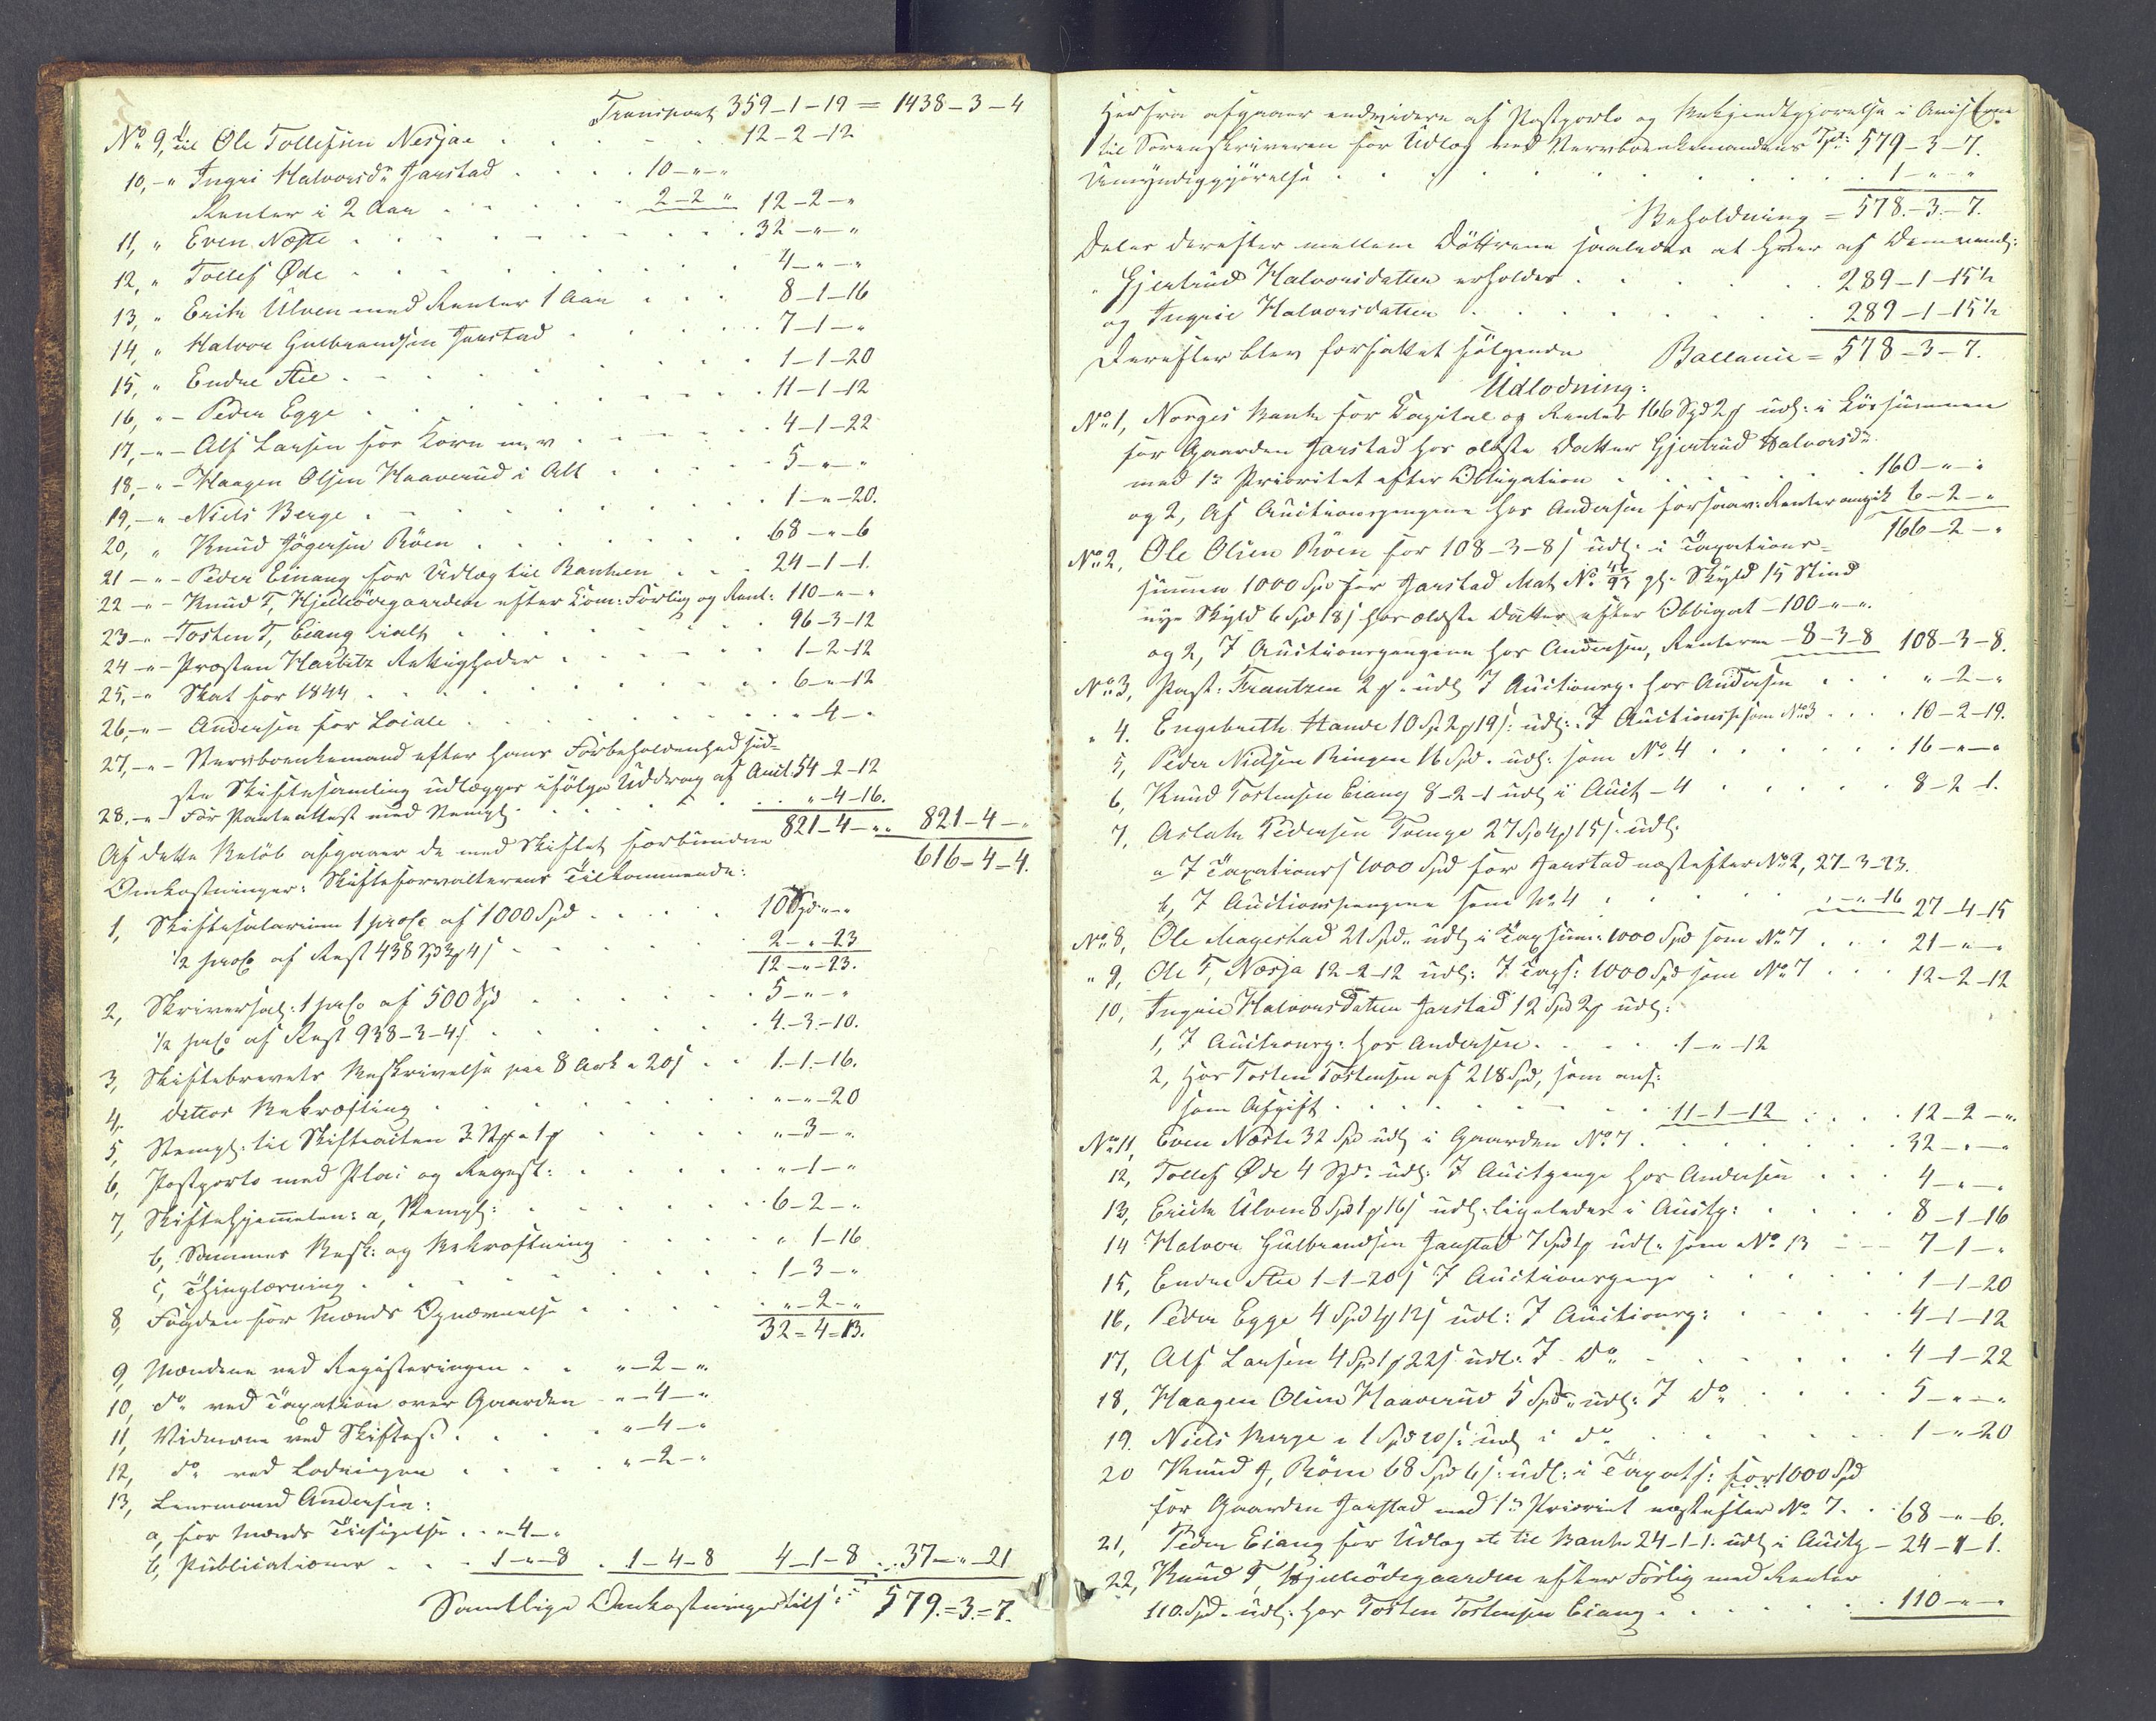 Transport 359-1-19 = 1438-3-4
No 9, til Ole Tollefsen Nesjae . . . 12-2-12
10, -" Ingri Halvorsdr Jarstad . . . 10-"-"
Renter i 2 Aar . . . 2-2-" 12-2-"
11, " Even Næste . . . 32-"-"
12, " Tollef Øde . . . 4-"-"
13, " Erik Ulven med Renter 1 Aar . . . 8-1-16
14, " Halvor Gulbrandsen Jarstad . . . 7-1-"
15, " Endre Stie . . . 1-1-20
16, "- Peder Egge . . . 11-1-12
17, -"- Alf Larsen for Korn m. v. . . . 4-1-22
18, -"- Haagen Olsen Haaverud i Alt . . . 5-"-"
19, -" Niels Berge . . . 1-"-20.
20, " Knud Jögersen Röen . . . 68-"-6
21 -"- Peder Einang for Udlæg til Banken . . . 24-1-1.
22 -"- Knud T, Hjelleödegaarden efter Kom: Forlig og Rent: 110-"-"
23 -"- Tosten T, Eiang ialt . . . 96-3-12
24 -"- Præsten Harbitz Rettigheder . . . 1-2-12
25, -" Skat for 1844 . . . 6-"-12
26, -"- Andersen for Locale . . . "-4-"
27, -"- Stervboenkemand efter hans Forbeholdenhed sid-
ste Skiftesamling udlægges ifölge Uddrag af Auct. 54-2-12
28. -"- For Panteattest med Stempl: . . . "-4-16.
821-4-" 821-4-"
Af dette Belöb afgaaer de med Skiftet forbundne 616-4-4.
Omkostninger: Skifteforvalterens Tilkommende:
1, Skiftesalarium 1 proC af 1000 Spd . . . 10 Spd "-"
1/2 proC af Rest 438 Spd 3 4 s . . . 2-"-23
12-"-23.
2, Skriversal: 1 prC af 500 Spd . . . 5-"-"
1/2 prC af Rest 938-3-4 s . . . 4-3-10.
3, Skiftebrevets Beskrivelse paa 8 Ark a 20 s . . 1-1-16.
4, dettos Bekræftning . . . "-"-20
5, Stempl: til Skifteacten 3 a 1 . . . "-3-"
6, Postporto med Plac: og Regist: . . . "-1-"
7, Skiftehjemmelen: a, Stempl: . . . 6-2-"
b, Sammes Besk: og Bekræftning . . . " 1-16
c, Thinglæsning . . . 1-3-"
8, Fogden for Mænds Opnævnelse . . . "-2-"
32=4=13.
9, Mændene ved Registeringen . . "-2-"
10, do ved Taxation over Gaarden - "-4-"
11, Vidnerne ved Skiftet . . . "-4-"
12, do ved Lodningen . . . "-2-"
13, Lensmand Andersen:
a, for Mænds Tilsigelse . . "-4-"
b, Publicationer . . . 1-"-8 . 1-4-8 4-1-8 . . 37-"-21
Samtlige Omkostninger 579.=3.=7.
Herfra afgaaer endvidere af Postporto og Bekjendtgjørelse i Aviserne
til Sorenskriveren for Udlæg ved Stervboenkemandens Spd: 579-3-7.
Umyndiggjörelse . . . 1-"-"
Beholdning = 578.-3.-7.
Deles derefter mellem Döttrene saaledes at hver af dem nemlig:
" Gjertrud Halvorsdatter erholder . . . 289-1-15 1/2
og Ingrie Halvorsdatter . . . 289-1-15 1/2
Derefter blev forfattet fölgende Ballance = 578-3-7.
Udlodning:
No 1, Norges Bank for Kapital og Renter 166 Spd 2 udl: i Kjöbsummen
for Gaarden Jarstad hos ældste Datter Gjertrud Halvorsdr
med 1ste Prioritet efter Obligation . . . 160-"-"
og 2, Af Auctionspengene hos Andersen Renter 6-2-"
166-2-"
No 2, Ole Olsen Röen for 108-3-8 s udl: i Taxations-
summen 1000 Spd for Jarstad Mat No 46/93 gl. Skyld 15 Skind
nye Skyld 6 Spd 18 s hos ældste Datter efter Obligat - 100-"-".
og 2, I Auctionspengene hos Andersen, Renterne - 8-3-8 108-3-8.
No 3, Past: Frantzen 2 udl I Auctionsp. hos Andersen . . . "-2-"
" 4. Engebreth Hande 10 Sp 2 19 s: udl: I Auctions som No 3 . . . 10-2-19.
5, Peder Nielsen Ringen 16 Spd. udl: som No 4 . . . 16-"-"
6, Knud Tostensen Eiang 8-2-1 udl i Auct - 4 . . . 8-2-1.
7, Aslak Pedersen Tvenge 27 Spd 4 15 s. udl:
a I Taxations 1000 Spd for Jarstad næstefter No 2, 27-3-23.
b, I Auctionspengene som No 4 . . . "-"-16 27-4-15
No 8, Ole Magestad 21 Spd. udl i Taxsum: 1000 Spd som No 7 . . . 21-"-"
" 9, Ole T, Nesja 12-2-12 udl: I Taxs: 1000 Spd som No 7 . . . 12-2-12
10, Ingrie Halvorsdatter Jarstad 12 Spd 2 udl:
1, I Auctionsp: hos Andersen . . . 1-"-12
2, Hos Tosten Tostensen af 218 Spd, som anf:
som Afgift . . . 11-1-12 . . . 12-2-".
No 11, Even Næste 32 Spd udl i Gaarden No 7 . . . 32-"-"
12, Tollef Øde 4 Spd: udl: I Auctpenge hos Andersen . . . 4-"-"
13, Erich Ulven 8 Spd 1 16 s udl: ligeledes i Auctp: . . . 8-1-16
14 Halvor Gulbrandsen Jarstad 7 Spd 1 udl: som No 13 . . . 7-1-"
15, Endre Stie 1-1-20 s I Auctionspenge . . . 1-1-20
16, Peder Egge 4 Spd 1 12 s udl: I Auctionsp: . . . 4-1-12
17, Alf Larsen 4 Spd 1 22 s udl: I do . . . 4-1-22
18, Haagen Olsen Haaverud 5 Spd: udl: I do . . . 5-"-"
19. Niels Berge a 1 Spd 20 s: udl i do . . . 1-"-20
20 Knud J, Röen 68 Spd 6 s: udl: i Taxats: for 1000 Spd
for Gaarden Jarstad med 1ste Priorit næstefter No 7 . . 68-"-6.
21, Peder Eiang for Udlæg til Bank 24-1-1. udl i Auctp - 24-1-1.
22, Knud T, Hjelleödegaarden efter Forlig med Renter
110. Spd. udl: hos Tosten Tostensen Eiang . . . 110-"-"